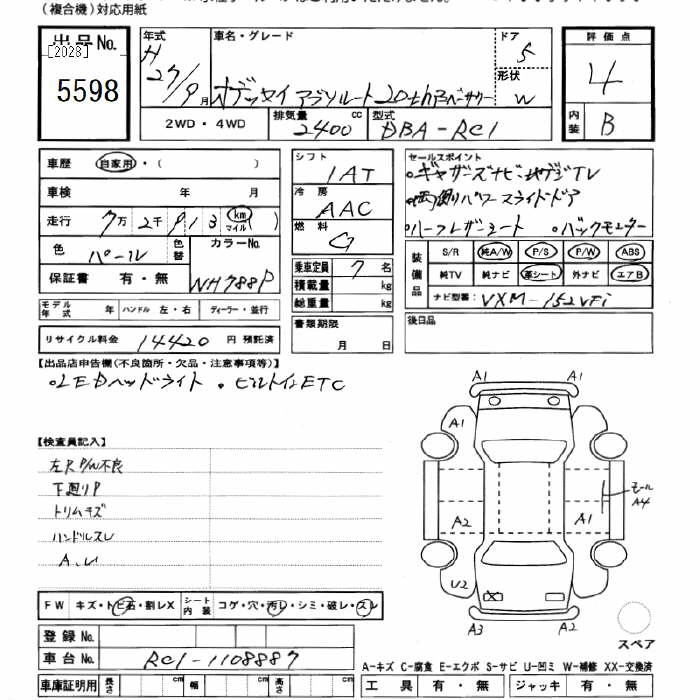 （複合機）対応用紙
出品No.
[2028]
5598
年式 H 27/9月
車名・グレード
オデッセイ アブソルート 20th アニバーサリー
ドア 5
形状 W
評価点 4
内装 B
2WD・4WD
排気量 2400 cc
型式 DBA-RC1
車歴 自家用・（ ）
車検 年 月
走行 7万2千913 km マイル( )
色 パール 色替
カラーNo. NH788P
保証書 有・無
モデル年式 年 ハンドル 左・右 ディーラー・並行
リサイクル料金 14420 円 預託済
シフト IAT
冷房 AAC
燃料 G
乗車定員 7 名
積載量 kg
総重量 kg
書類期限
月 日
セールスポイント
・ギャザーズナビ・地デジTV
・両側パワースライドドア
・ハーフレザーシート ・バックモニター
装備品
S/R 純A/W P/S P/W ABS
純TV 純ナビ 革シート 外ナビ エアB
ナビ型番: VXM-152VFi
後日品
【出品店申告欄(不良箇所・欠品・注意事項等)】
・LEDヘッドライト ・ビルトインETC
【検査員記入】
左R P/W不良
下廻りP
トリムキズ
ハンドルスレ
A.U
A1 A1
A1
モール
A4
A2 A1
U2
A3 A2
スペア
FW キズ・トビ石・割レX シート内装 コゲ・穴・汚レ・シミ・破レ・スレ
登録No.
車台No. RC1-1108887
車庫証明用 長さ cm 幅 cm 高さ cm
A-キズ C-腐食 E-エクボ S-サビ U-凹ミ W-補修 XX-交換済
工具 有・無 ジャッキ 有・無